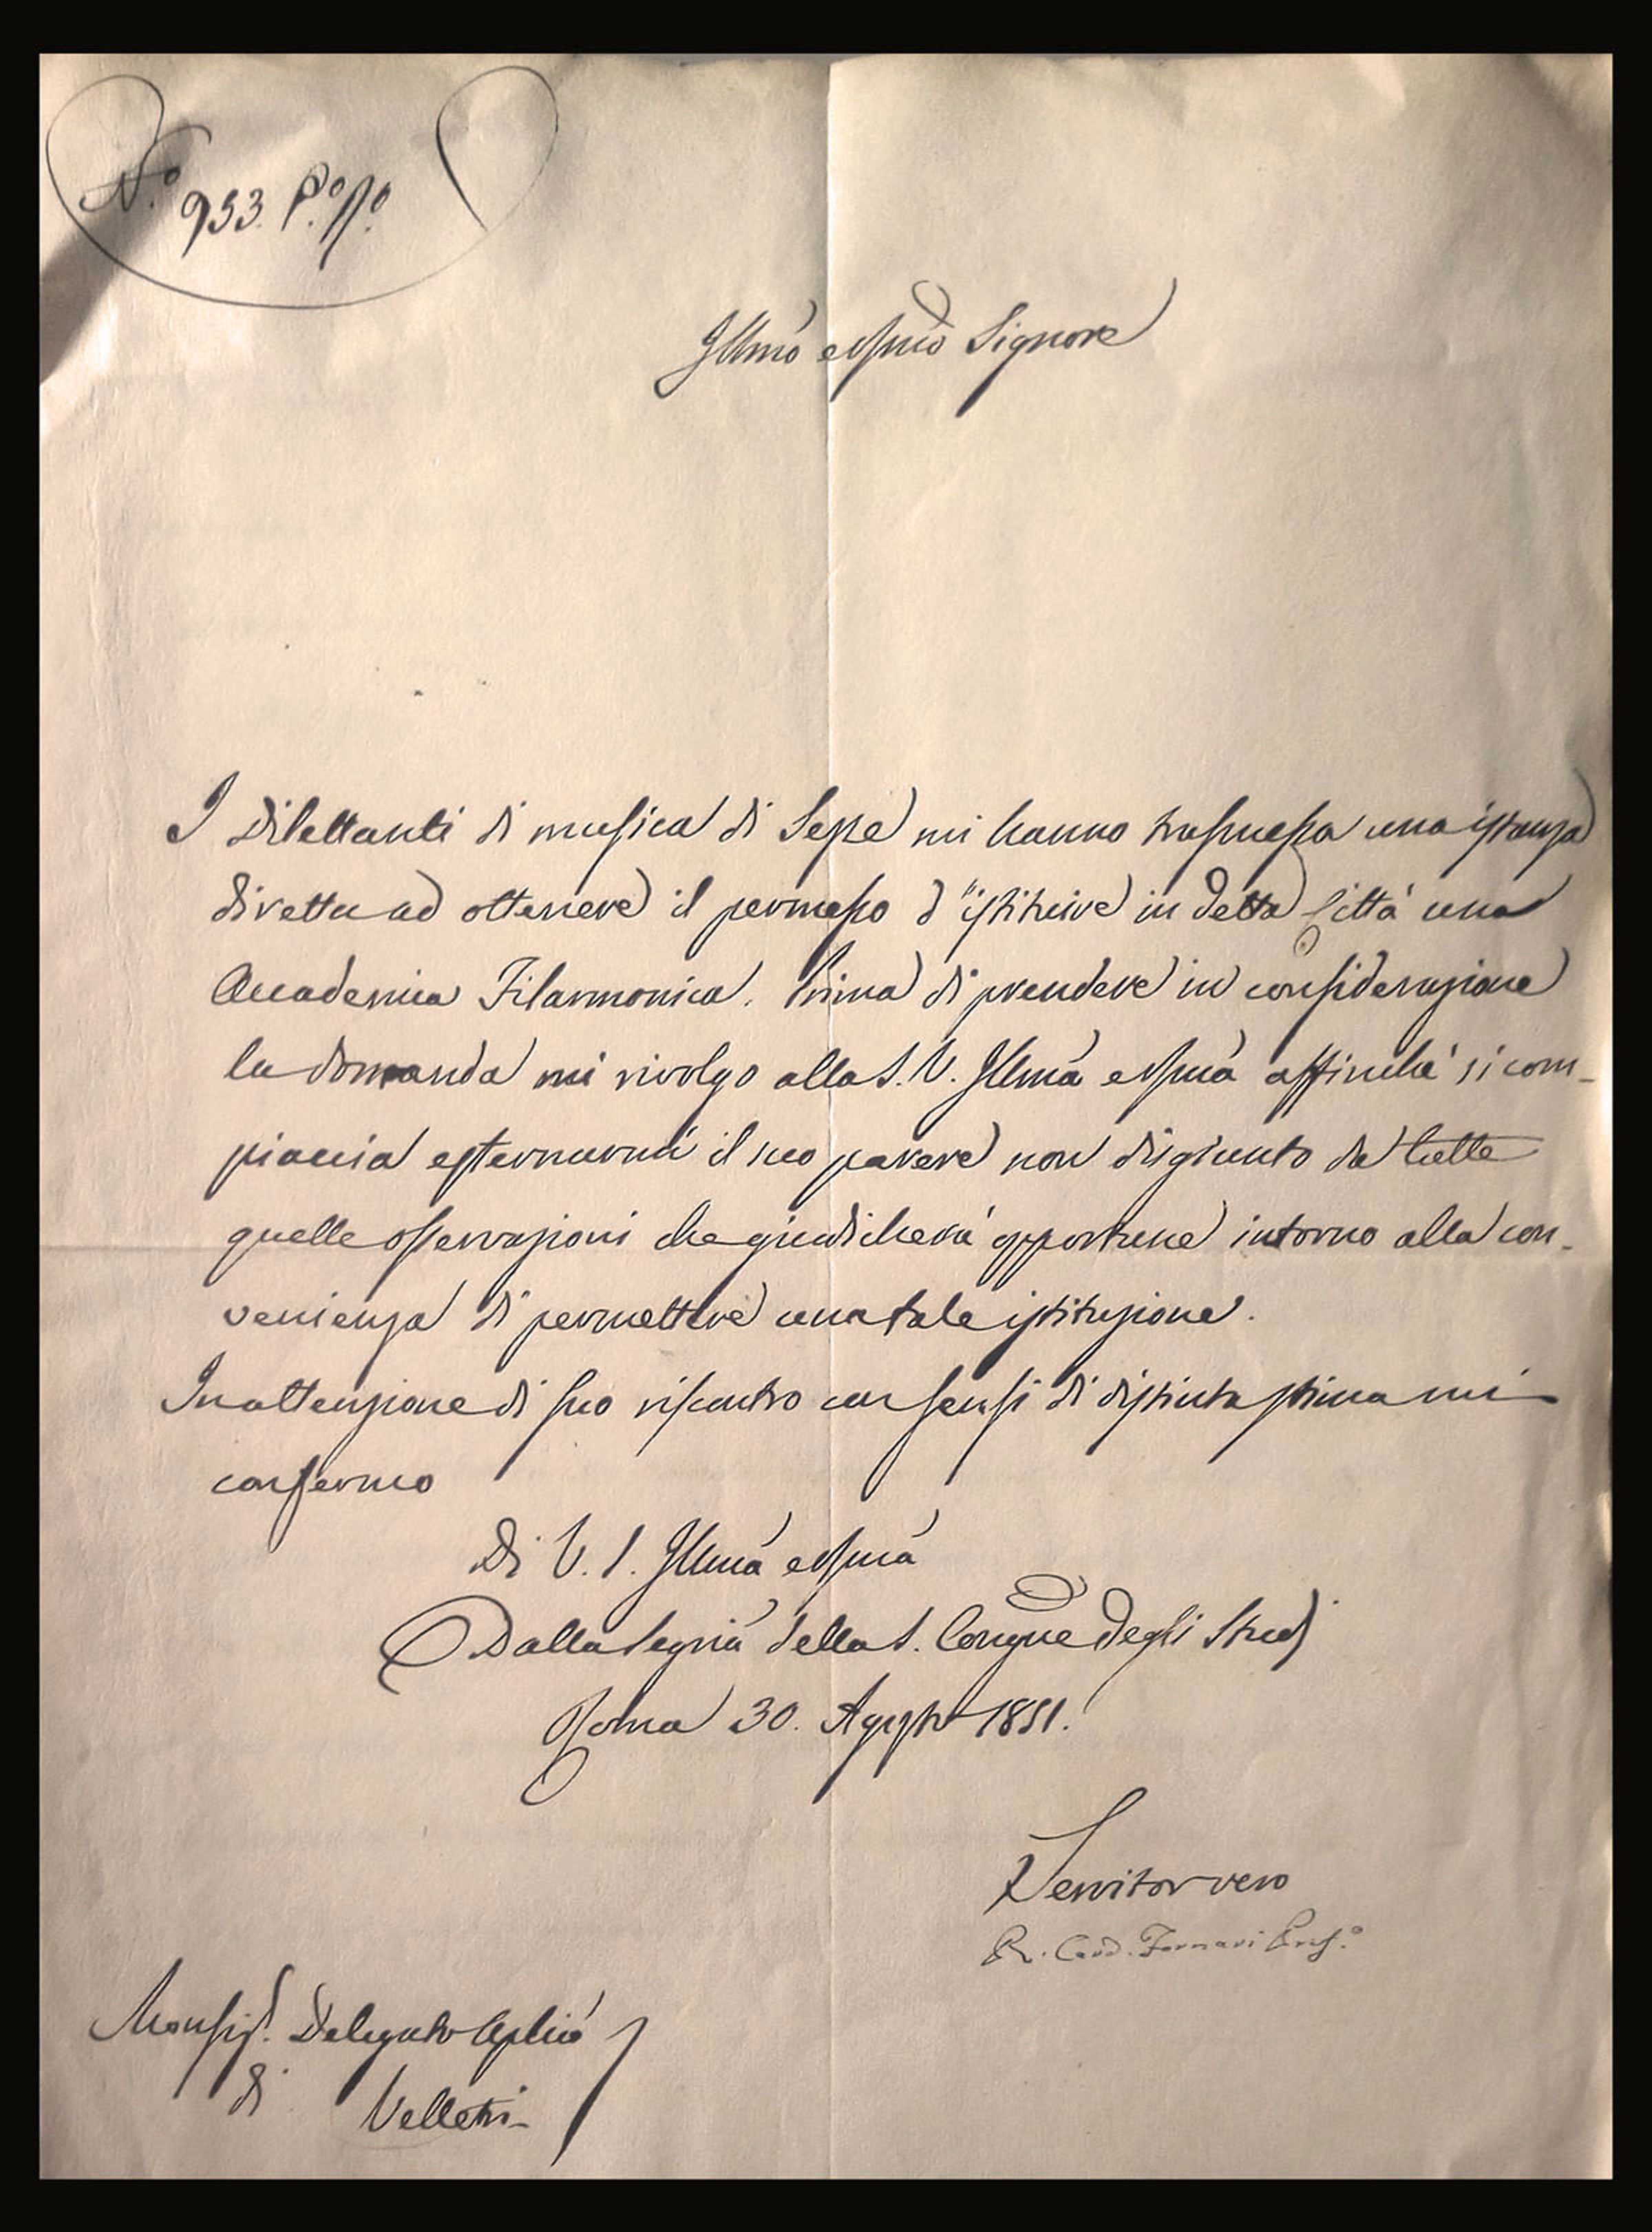 N.º 953. P.º p.º
Illmo e Rmo Signore
I Dilettanti di musica di Sezze mi hanno trasmessa una istanza
diretta ad ottenere il permesso d'istituire in detta Città una
Accademia Filarmonica. Prima di prendere in considerazione
la domanda mi rivolgo alla S. V. Illma e Rma affinchè si com-
piaccia esternarmi il suo parere non disgiunto da tutte
quelle osservazioni che giudicherà opportune intorno alla con-
venienza di permettere una tale istituzione.
In attenzione di suo riscontro con sensi di distinta stima mi
confermo
Di V. S. Illma e Rma
Dalla Segria della S. Congne degli Studj
Roma 30. Agosto 1851.
Servitor vero
R. Card. Fornari Pref.º
Monsig.r Delegato Aplico
di Velletri